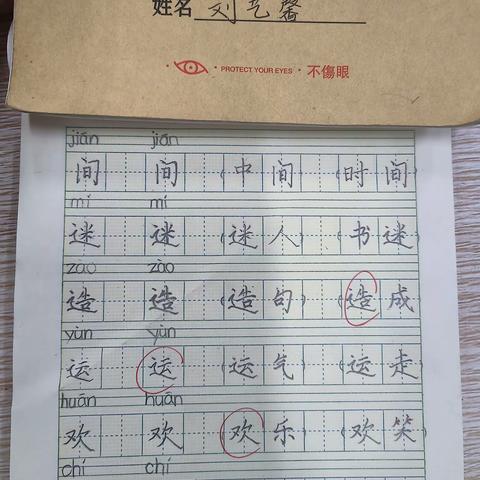 姓名 刘艺馨
PROTECT YOUR EYES · 不傷眼
jián jián
间 间 (中间) (时间)
mí mí
迷 迷 (迷人) (书迷)
zào zào
造 造 (造句) (造成)
yùn yùn
运 运 (运气) (运走)
huān huān
欢 欢 (欢乐) (欢笑)
chí chí